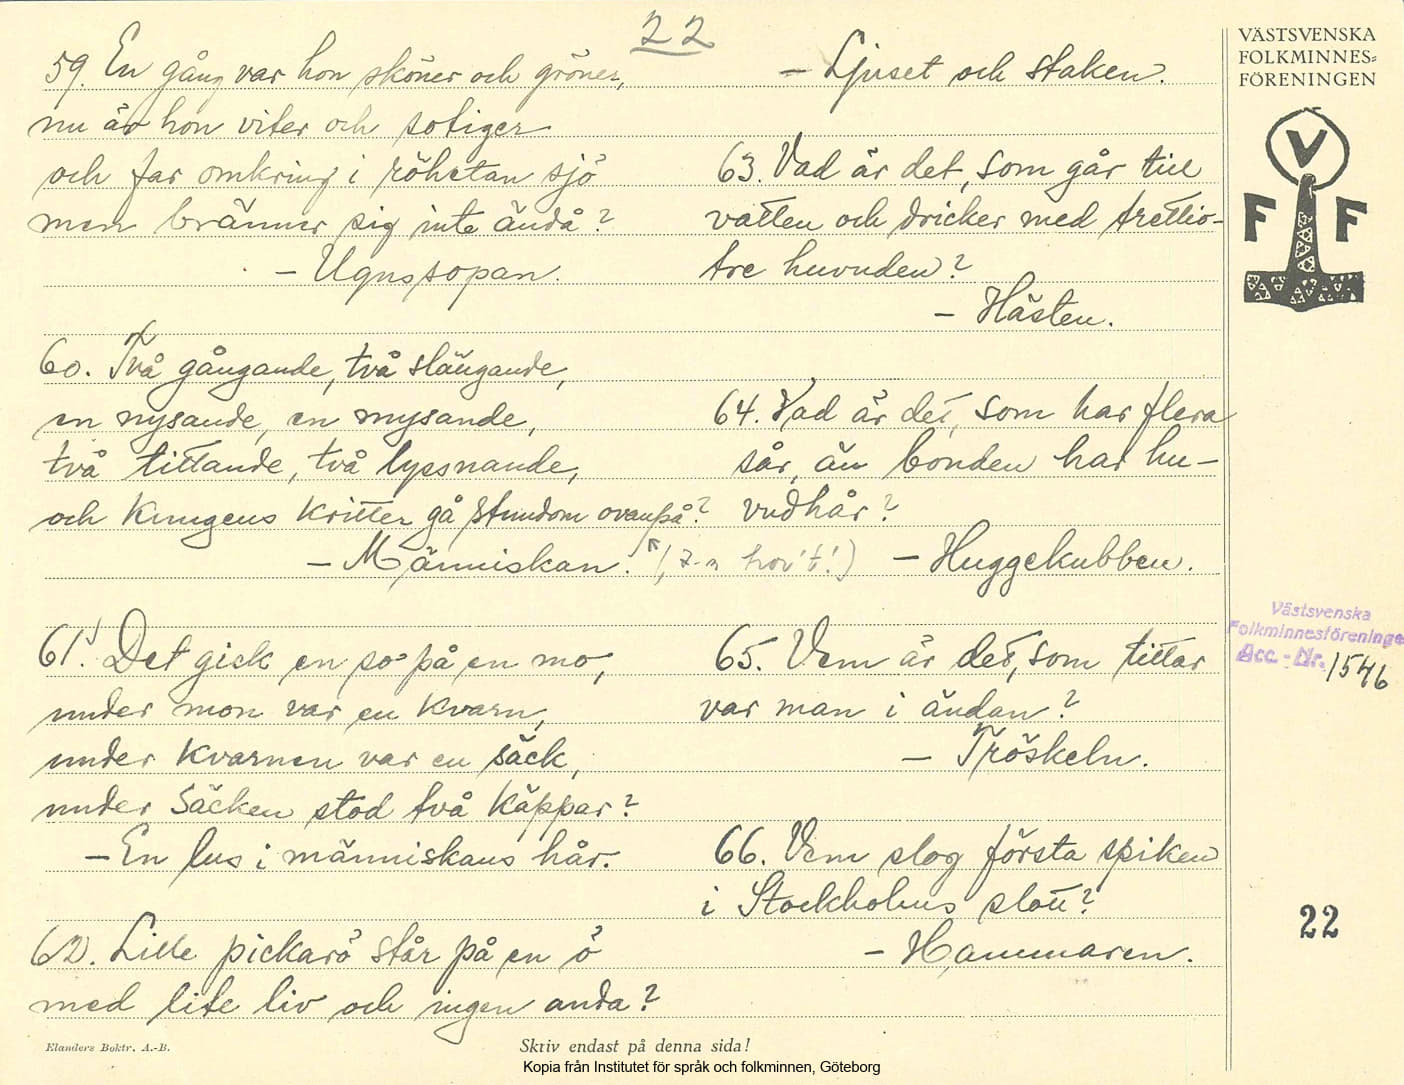 22
59. En gång var hon sköner och gröner,
nu är hon viter och sotiger
och far omkring i röhetan sjö
men bränner sig inte ändå?
– Ugnssopan.
60. Två gångande, två slängande,
en nysande, en mysande,
två tittande, två lyssnande,
och kungens kritter gå stundom ovanpå?
– Människan.
61. Det gick en so på en mo,
under mon var en kvarn,
under kvarnen var en säck,
under säcken stod två käppar?
– En lus i människans hår.
62. Lille pickarö står på en ö
med lite liv och ingen anda?
– Ljuset och staken.
63. Vad är det, som går till
vatten och dricker med trettio-
tre huvuden?
– Hästen.
64. Vad är det, som har flera
sår, än bonden har hu-
vudhår?
– Huggekubben.
65. Vem är det, som tittar
var man i ändan?
– Tröskeln.
66. Vem slog första spiken
i Stockholms slott?
– Hammaren.
VÄSTSVENSKA
FOLKMINNES=
FÖRENINGEN
V
F F
Västsvenska
Folkminnesföreningen
Acc.-Nr. 1546
22
Elanders Boktr. A.-B.
Skriv endast på denna sida!
Kopia från Institutet för språk och folkminnen, Göteborg